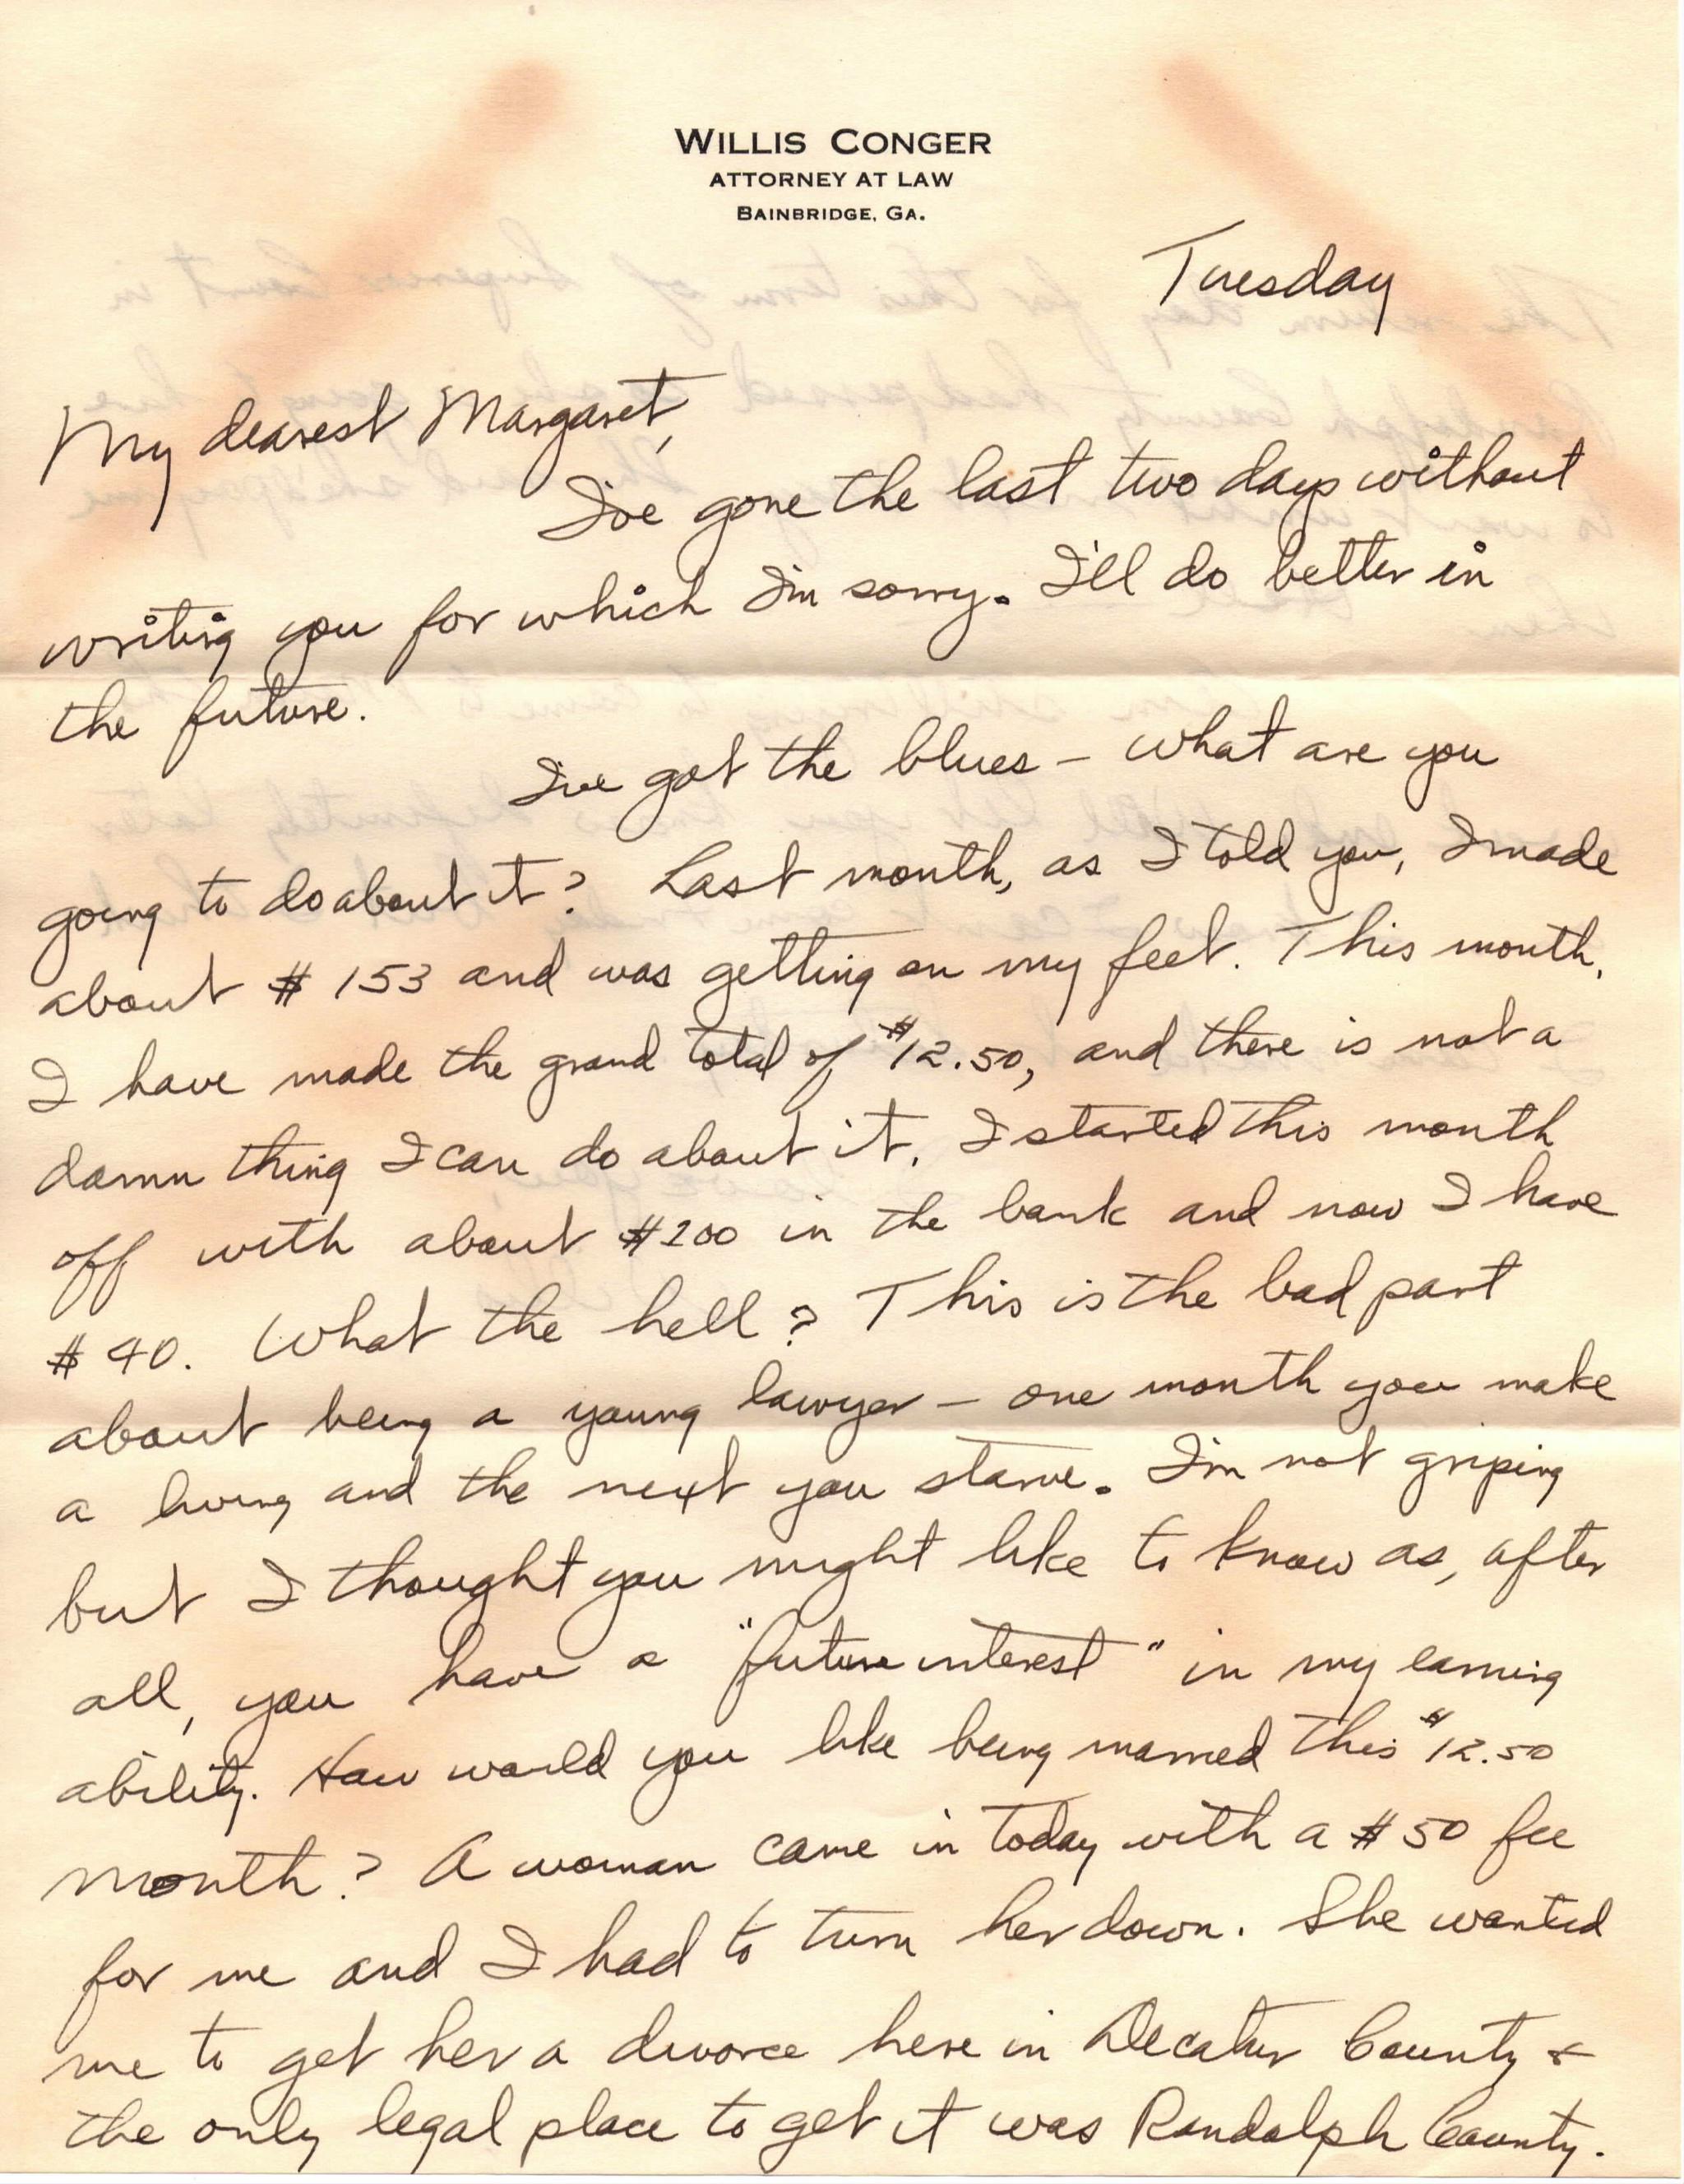 WILLIS CONGER
ATTORNEY AT LAW
BAINBRIDGE, GA.
Tuesday
My dearest Margaret,
I've gone the last two days without
writing you for which I'm sorry. I'll do better in
the future.
I've got the blues – what are you
going to do about it? Last month, as I told you, I made
about $153 and was getting on my feet. This month,
I have made the grand total of $12.50, and there is not a
damn thing I can do about it. I started this month
off with about $200 in the bank and now I have
$40. What the hell? This is the bad part
about being a young lawyer – one month you make
a living and the next you starve. I'm not griping
but I thought you might like to know as, after
all, you have a "future interest" in my earning
ability. How would you like being married this $12.50
month? A woman came in today with a $50 fee
for me and I had to turn her down. She wanted
me to get her a divorce here in Decatur County &
the only legal place to get it was Randolph County.